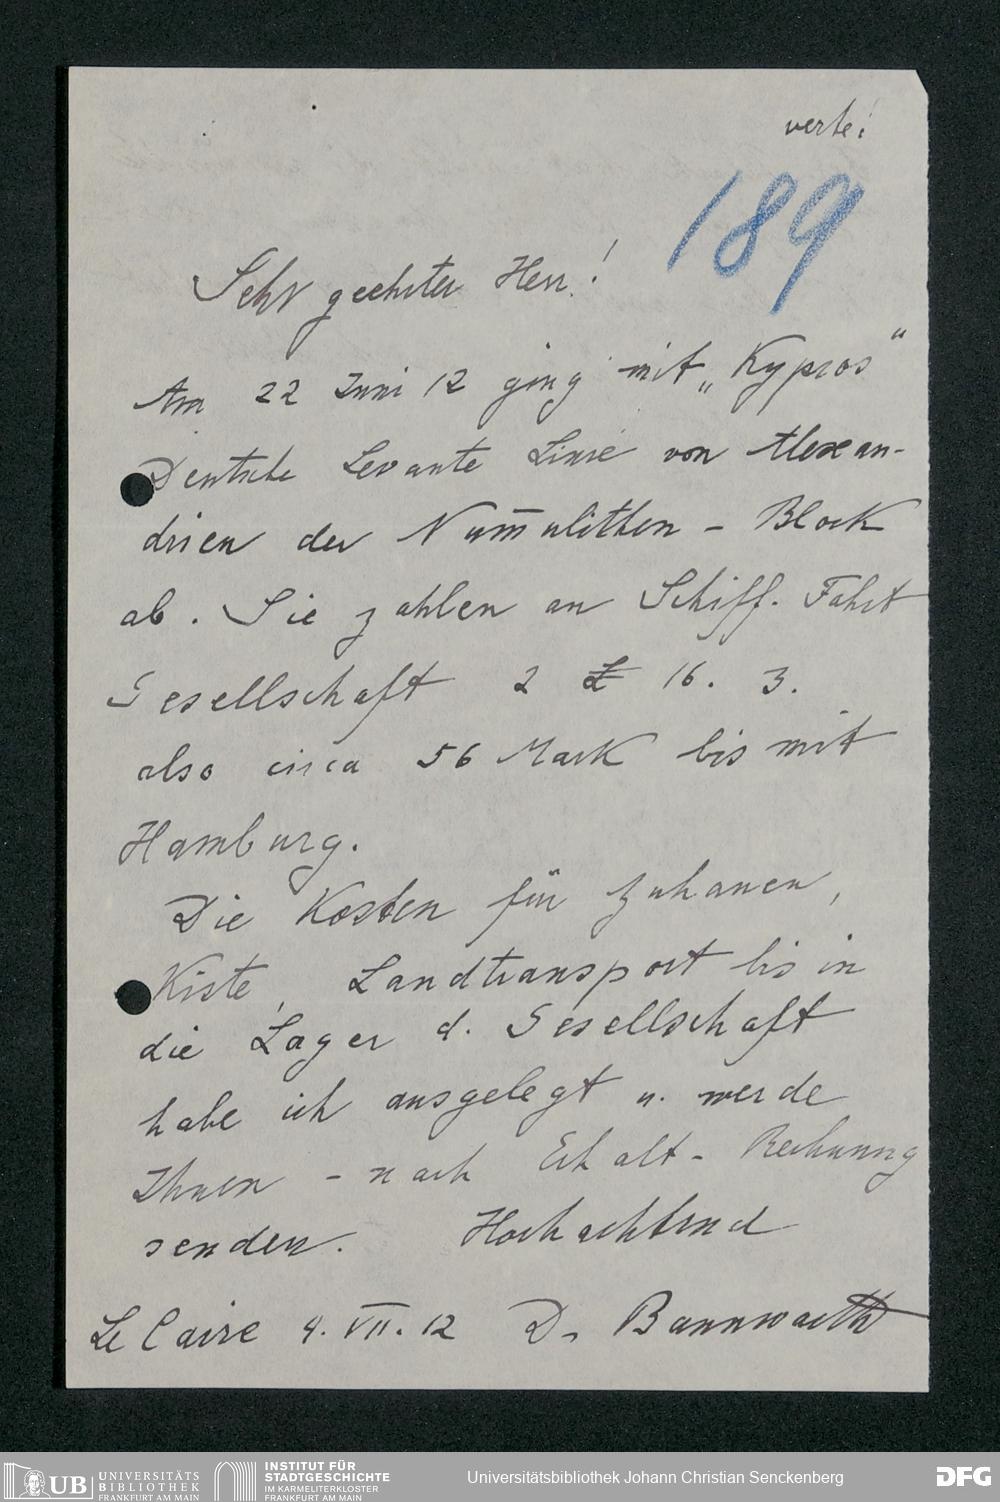 verte!
189
Sehr geehrter Herr!
Am 22 Juni 12 ging mit „Kypros"
Deutsche Levante Linie von Alexan-
drien der Num̅ulithen - Block
ab. Sie zahlen an Schiff. Fahrt
Gesellschaft 2 £ 16. 3.
also circa 56 Mark bis mit
Hamburg.
Die Kosten für Zuhauen,
Kiste, Landtransport bis in
die Lager d. Gesellschaft
habe ich ausgelegt u. werde
Ihnen - nach Erhalt - Rechnung
senden. Hochachtend
Le Caire 4. VII. 12 Dr Bannwarth
UB UNIVERSITÄTS
BIBLIOTHEK
FRANKFURT AM MAIN
INSTITUT FÜR
STADTGESCHICHTE
IM KARMELITERKLOSTER
FRANKFURT AM MAIN
Universitätsbibliothek Johann Christian Senckenberg
DFG